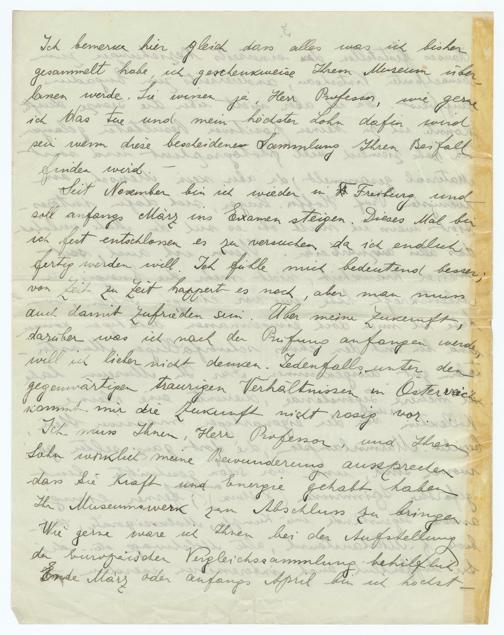 Ich bemerke hier gleich dass alles was ich bisher
gesammelt habe, ich geschenkweise Ihrem Museum über-
lassen werde. Sie wissen ja, Herr Professor, wie gerne
ich das tue und mein höchster Lohn dafür wird
sein wenn diese bescheidene Sammlung Ihren Beifall
finden wird –
Seit November bin ich wieder in Freiburg und
sole anfangs März ins Examen steigen. Dieses Mal bin
ich fest entschlossen es zu versuchen, da ich endlich
fertig werden will. Ich fühle mich bedeutend besser,
von Zeit zu Zeit happert es noch, aber man muss
auch damit zufrieden sein. Über meine Zukunft,
darüber was ich nach der Prüfung anfangen werde,
will ich lieber nicht denken. Jedenfalls unter den
gegenwärtigen traurigen Verhältnissen in Österreich
kommt mir die Zukunft nicht rosig vor.
Ich muss Ihnen, Herr Professor, und Ihrem
Sohn wirklich meine Bewunderung aussprechen
dass Sie Kraft und Energie gehabt haben
Ihr Museumswerk zum Abschluss zu bringen.
Wie gerne wäre ich Ihnen bei der Aufstellung
der Europäischen Vergleichssammlung behilflich
Ende März oder anfangs April bin ich höchst–